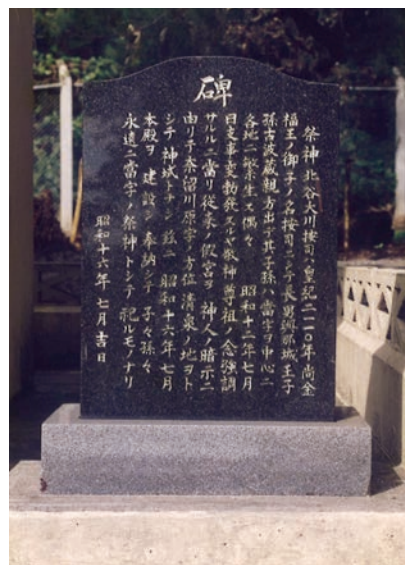 碑
祭神北谷大川按司ハ皇紀二一一〇年尚金
福王ノ御子ノ名按司ニシテ長男與那城王子
孫古波蔵親方出デ其子孫ハ當字ヲ中心ニ
各地ニ繁栄ス偶々 昭和十二年七月
日支事変勃發スルヤ敬神尊祖ノ念強調
サルルニ當リ従来ノ假宮ヲ神人ノ暗示ニ
由リテ奈留川原字ノ方位清泉ノ地ヲト
シテ神域トナシ茲ニ 昭和十六年七月
本殿ヲ建設シ奉納シテ子々孫々
永遠ニ當字ノ祭神トシテ祀ルモノナリ
昭和十六年七月吉日